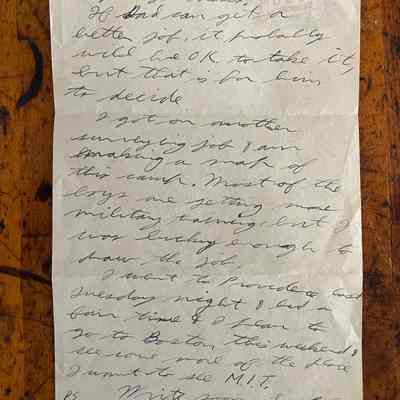 If Dad can get a
better job, it probably
will be OK to take it,
but that is for him
to decide
I got on another
surveying job & am
making a map of
this camp. Most of the
boys are getting more
military training but I
was lucky enough to
draw the job.
I went to Providence last
Tuesday night & had a
fair time & I plan to
go to Boston this weekend &
see some more of the place
I want to see M.I.T.
Write soon
PS